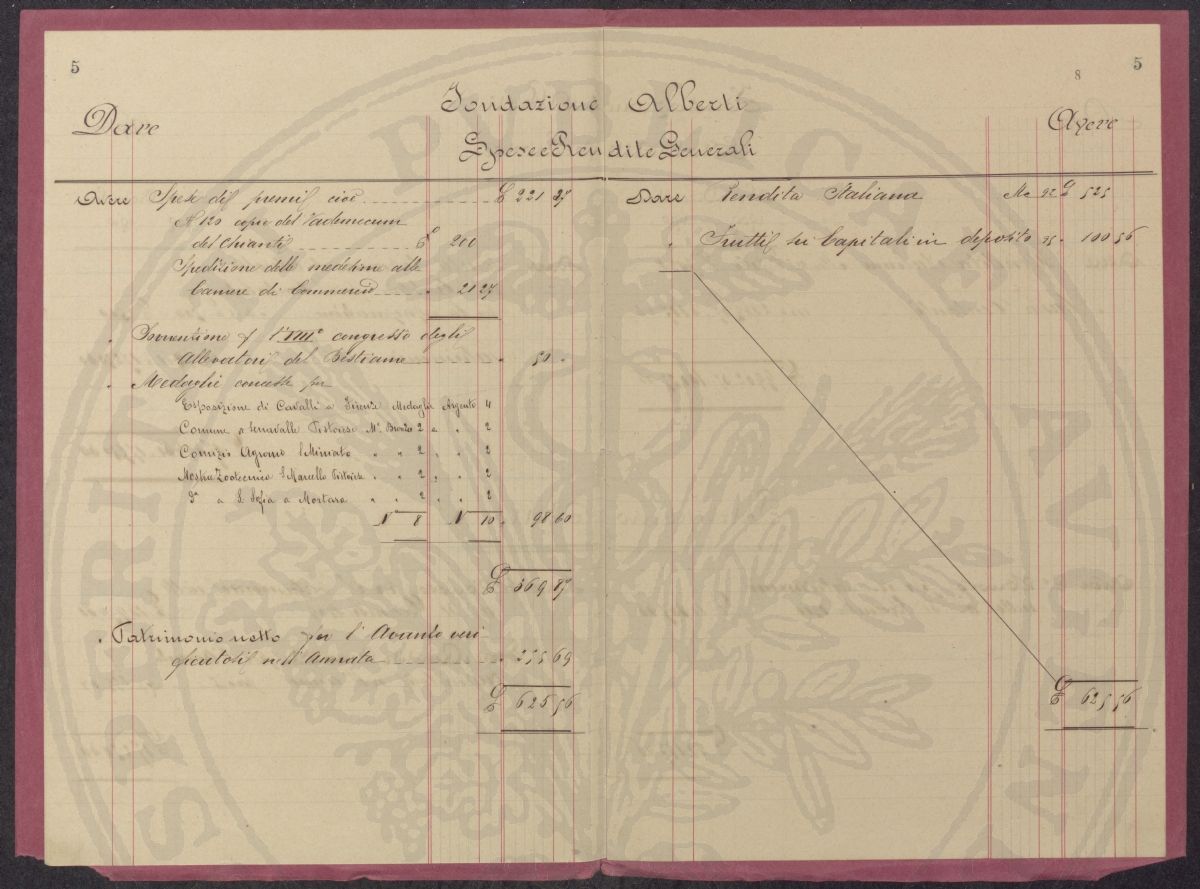 5
8
5
Fondazione Alberti
Dare
Avere
Spese e Rendite Generali
Avere Spese dei premii cioè £ 221 27
N 120 copie del Vademecum
del Chianti £ 200
Spedizione delle medesime alle
Camere di Commercio " 21 27
" Sovvenzione p l'VIII° congresso degli
Allevatori del Bestiame " 50 "
" Medaglie concesse per
Esposizione di Cavalli a Firenze Medaglie Argento 4
Comune Serravalle Pistoiese Me Bronzo 2 " " 2
Comizio Agrario S Miniato " " 2 " " 2
Mostra Zootecnica S Marcello Pistoiese " " 2 " " 2
Da a S Sofia a Mortara " " 2 " " 2
N° 8 N° 10 " 98 60
£ 369 87
" Patrimonio netto per l'Avanzo veri
ficatosi nell'Annata " 255 69
£ 625 56
Dare Rendita Italiana Me 92 £ 525
" Frutti sui Capitali in deposito 75 " 100 56
£ 625 56
PUBLIC